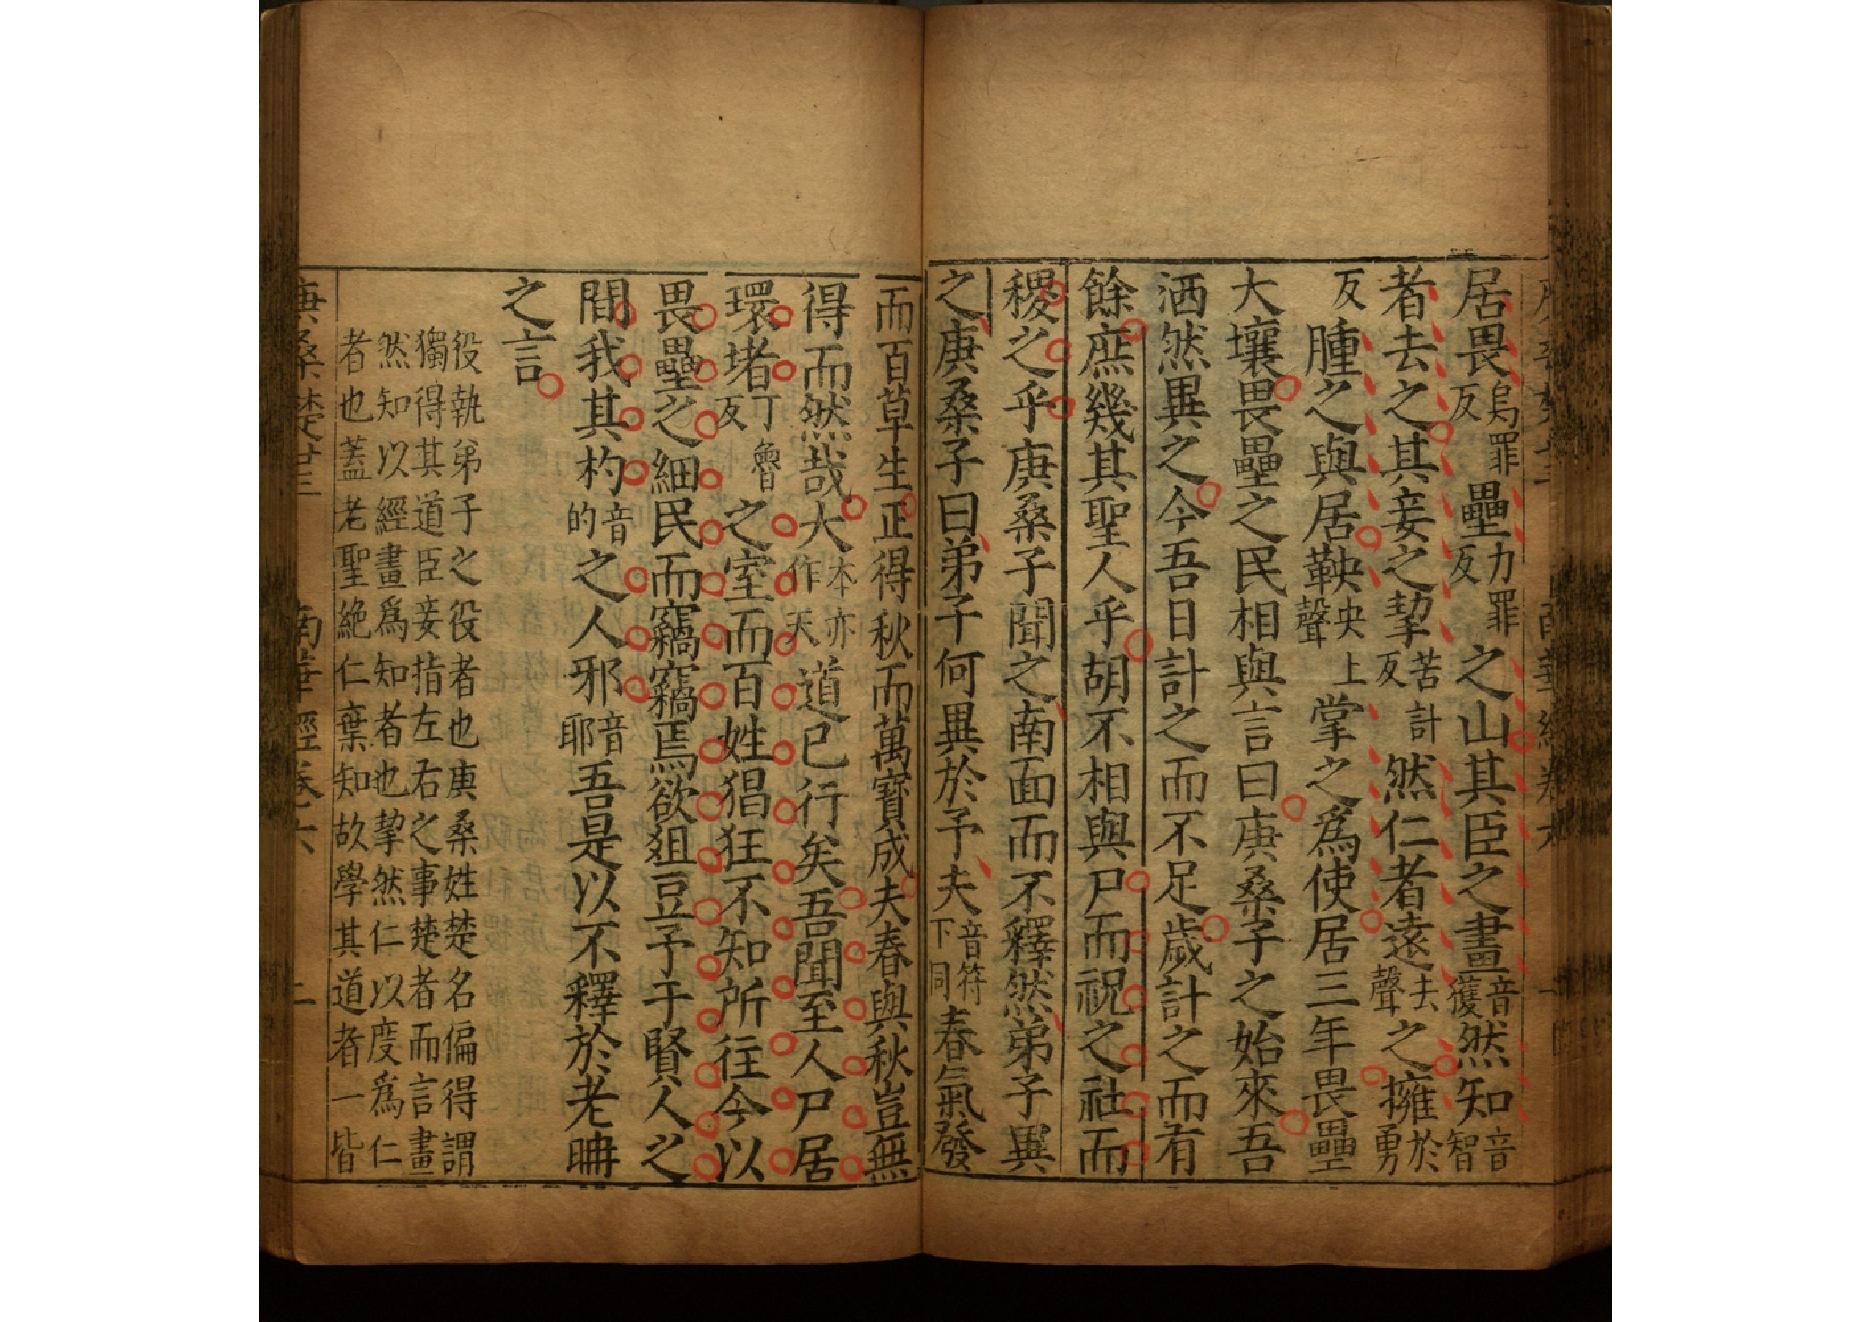 居畏烏罪反壘力罪反之山其臣之畫音獲然知音智
者去之其妾之挈苦計反然仁者遠去聲之擁於勇
反腫之與居鞅央上聲掌之爲使居三年畏壘
大壤畏壘之民相與言曰庚桑子之始來吾
洒然異之今吾日計之而不足歲計之而有
餘庶幾其聖人乎胡不相與尸而祝之社而
稷之乎庚桑子聞之南面而不釋然弟子異
之庚桑子曰弟子何異於予夫音符下同春氣發
而百草生正得秋而萬寶成夫春與秋豈無
得而然哉大本亦作天道已行矣吾聞至人尸居
環堵丁魯反之室而百姓猖狂不知所往今以
畏壘之細民而竊竊焉欲俎豆予于賢人之
間我其杓音的之人邪音耶吾是以不釋於老聃
之言
役執弟子之役者也庚桑姓楚名偏得謂
獨得其道臣妾指左右之事楚者而言畫
然知以經畫爲知者也挈然仁以度爲仁
者也蓋老聖絶仁棄知故學其道者一皆
庚桑楚廿三 南華經卷六 二